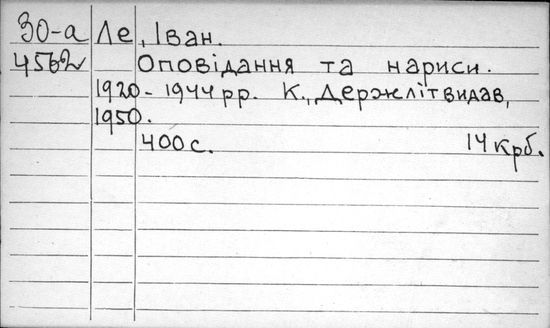 30-а Ле, Іван.
4562 Оповідання та нариси.
1920-1944 рр. К., Держлітвидав,
1950.
400 с. 14 крб.